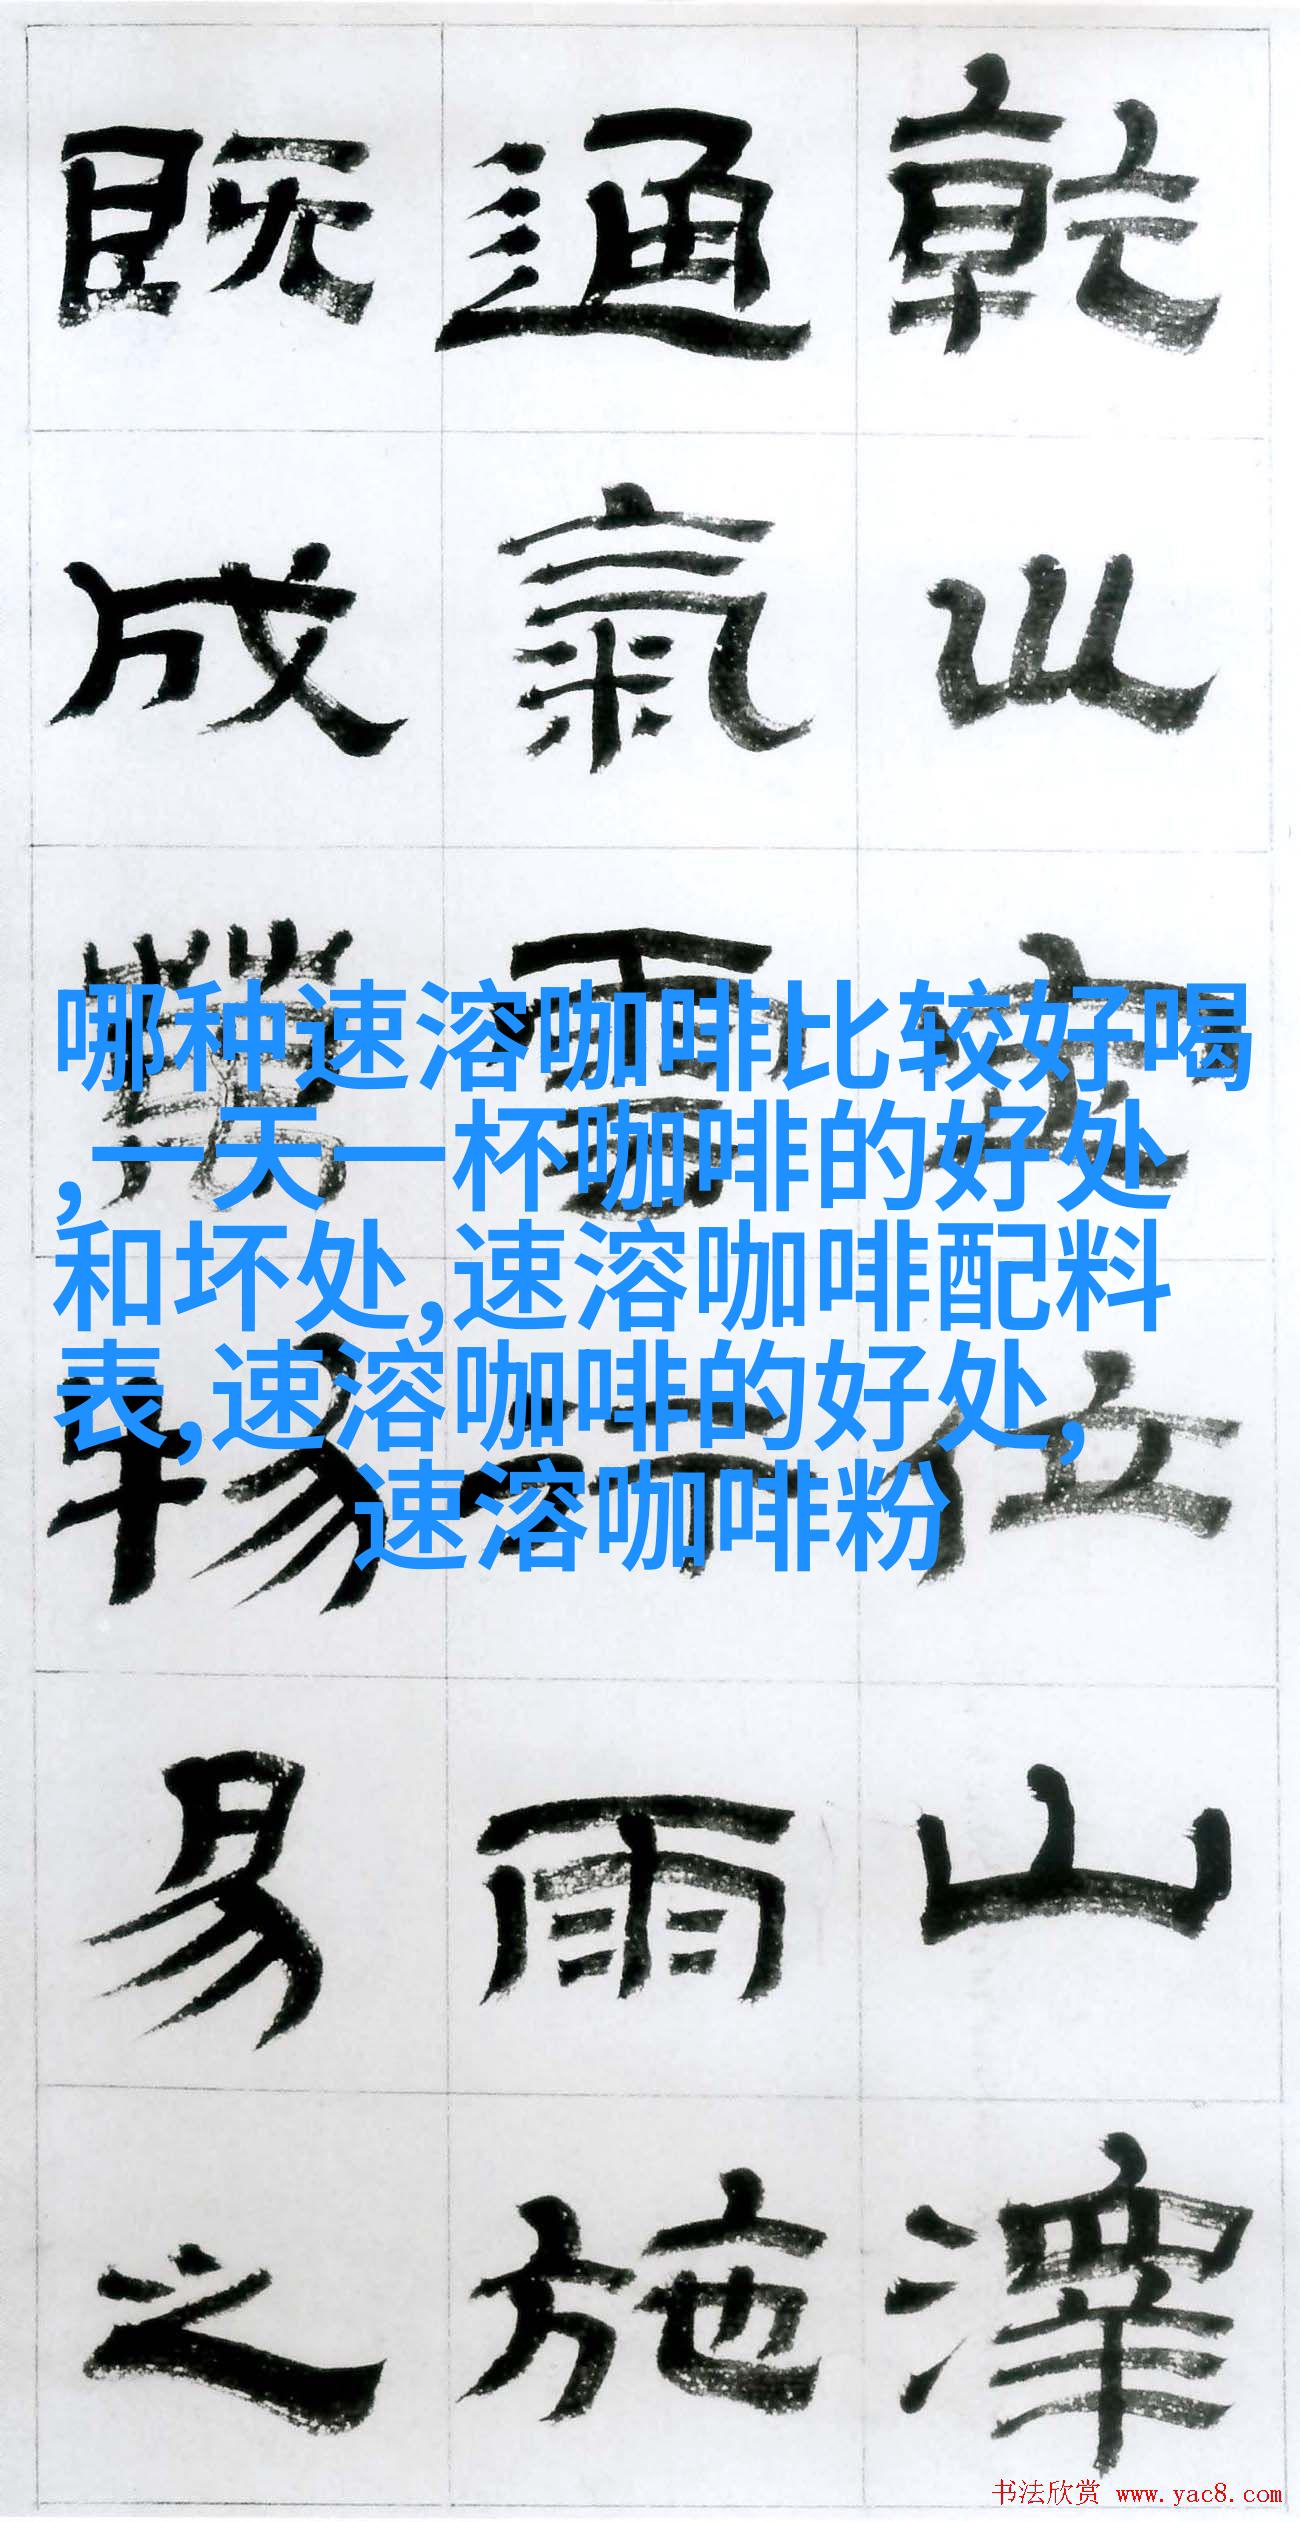 乾坤定位山澤
通氣雲行雨施
既成萬物易之
哪种速溶咖啡比较好喝
,一天一杯咖啡的好处
和坏处,速溶咖啡配料
表,速溶咖啡的好处,
速溶咖啡粉
书法欣赏 www.yac8.com